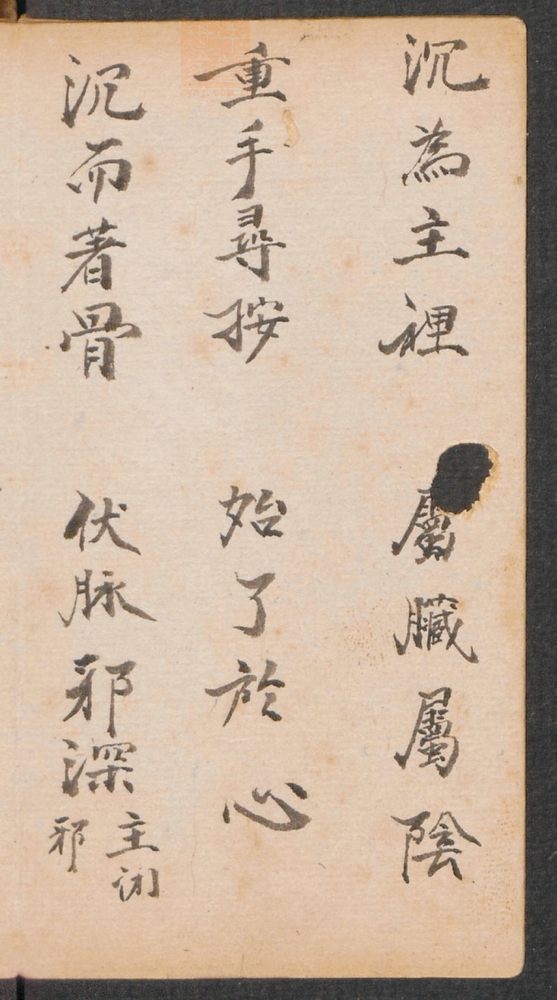 沉為主裡　屬臟屬陰
重手尋按　始了於心
沉而著骨　伏脉邪深
主闭
邪